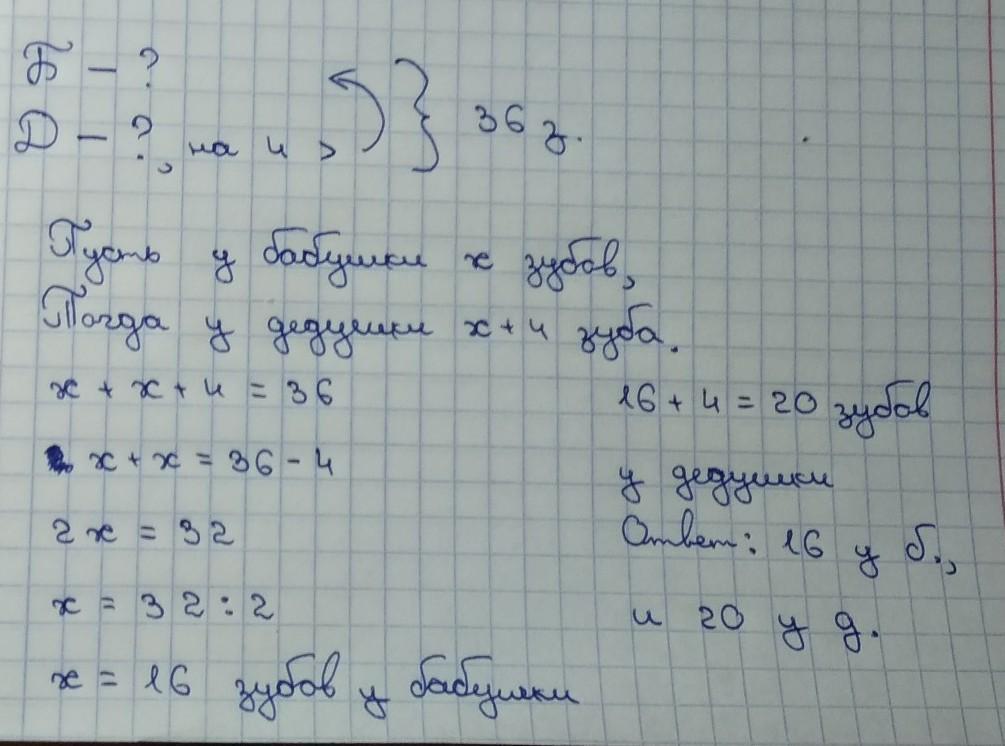 Б - ?
Д - ?, на 4 > } 36 з.
Пусть у бабушки x зубов,
Тогда у дедушки x+4 зуба.
x + x + 4 = 36
x + x = 36 - 4
2x = 32
x = 32 : 2
x = 16 зубов у бабушки
16 + 4 = 20 зубов
у дедушки
Ответ: 16 у б.,
и 20 у д.